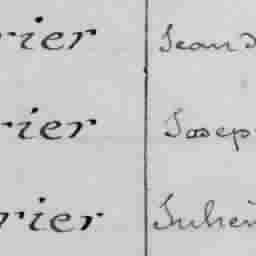 rier Jean
rier Josep
rier Julien